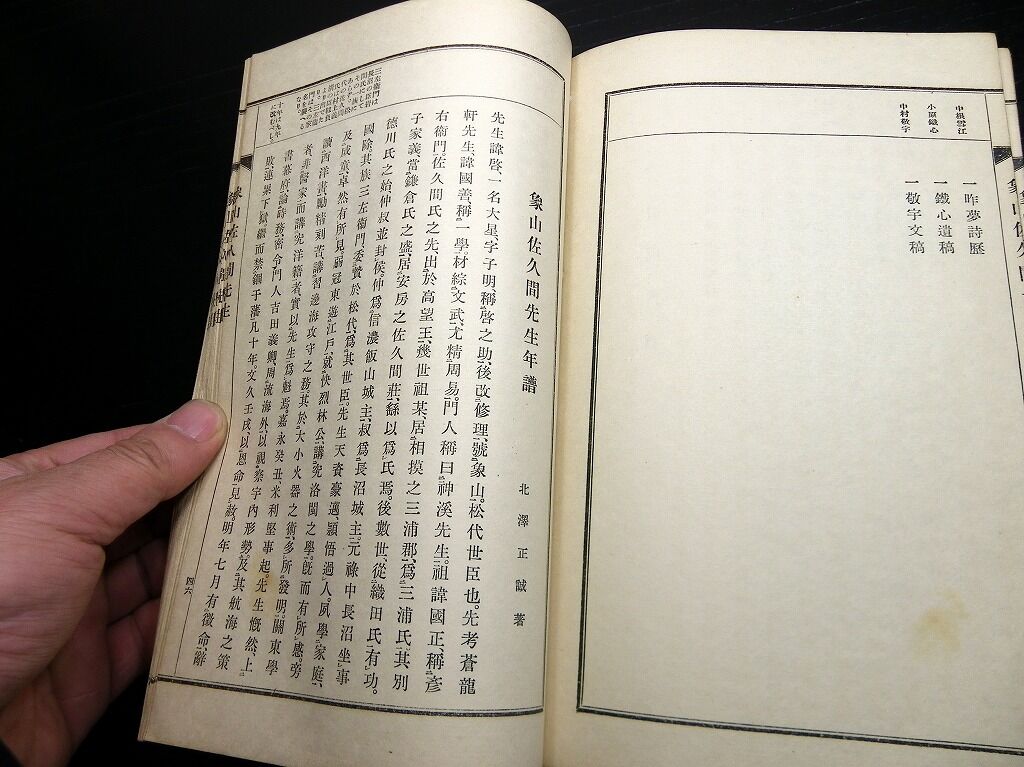 中根雪江
一昨夢詩歴
小原鐵心
一鐵心遺稿
中村敬宇
一敬宇文稿
象山佐久間先生年譜
北澤正誠著
先生諱啓、一名大星、字子明、稱啓之助、後改修理、號象山。松代世臣也。先考蒼龍
軒先生、諱國善、稱一學、材綜文武、尤精周易。門人稱曰神溪先生。祖諱國正、稱彥
右衞門、佐久間氏之先、出於高望王、幾世祖某、居相摸之三浦郡、爲三浦氏。其別
子家義、當鎌倉氏之盛、居安房之佐久間莊、繇以爲氏焉。後數世、從織田氏有功。
德川氏之始、仲叔並封侯。仲爲信濃飯山城主、叔爲長沼城主。元祿中長沼坐事
國除、其族三左衞門、委贄於松代、爲其世臣。先生天資豪邁、穎悟過人。夙學家庭、
及成童、卓然有所見。弱冠東遊江戶、就快烈林公、講究洛閩之學。旣而有所感。旁
讀西洋書、勵精刻苦、講習邊海攻守之務。其於大小火器之術、多所發明。關東學
者、非醫家而講究洋籍者、實以先生爲魁焉。嘉永癸丑、米利堅事起。先生慨然、上
書幕府、論時務、密令門人吉田義卿、周流海外、以視察宇內形勢。及其航海之策
敗、連累下獄、繼而禁錮于藩凡十年。文久壬戌、以恩命見赦。明年七月有徵命、辭
三左衞門は
十年は九年
に改むべし
象山佐久間先生
四六